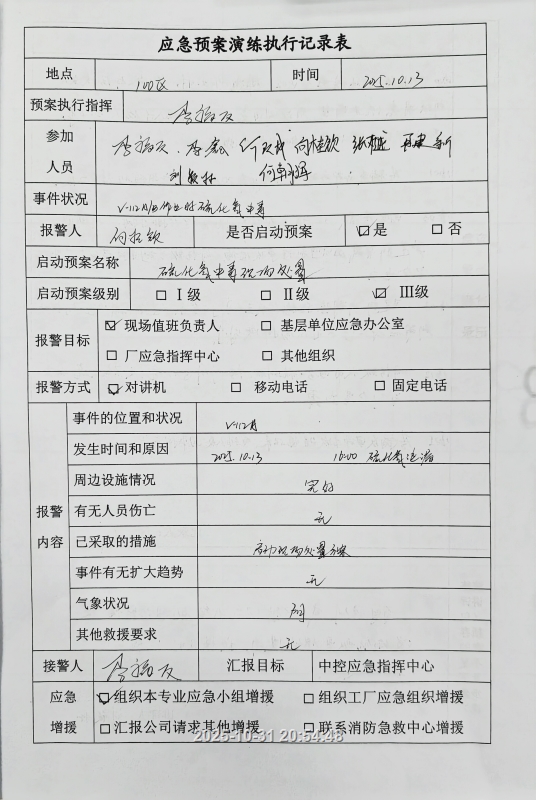 应急预案演练执行记录表
地点 100区 时间 2025.10.13
预案执行指挥
参加人员
事件状况 V-112 硫化氢中毒
报警人 是否启动预案 ☑是 □否
启动预案名称 硫化氢中毒现场处置
启动预案级别 □Ⅰ级 □Ⅱ级 ☑Ⅲ级
报警目标 ☑现场值班负责人 □基层单位应急办公室
□厂应急指挥中心 □其他组织
报警方式 ☑对讲机 □移动电话 □固定电话
报警内容
事件的位置和状况 V-112
发生时间和原因 2025.10.13 16:00 硫化氢泄漏
周边设施情况 完好
有无人员伤亡 无
已采取的措施 启动现场处置方案
事件有无扩大趋势 无
气象状况
其他救援要求 无
接警人 汇报目标 中控应急指挥中心
应急增援 ☑组织本专业应急小组增援 □组织工厂应急组织增援
□汇报公司请求其他增援 □联系消防急救中心增援
2025-10-31 20:54:48